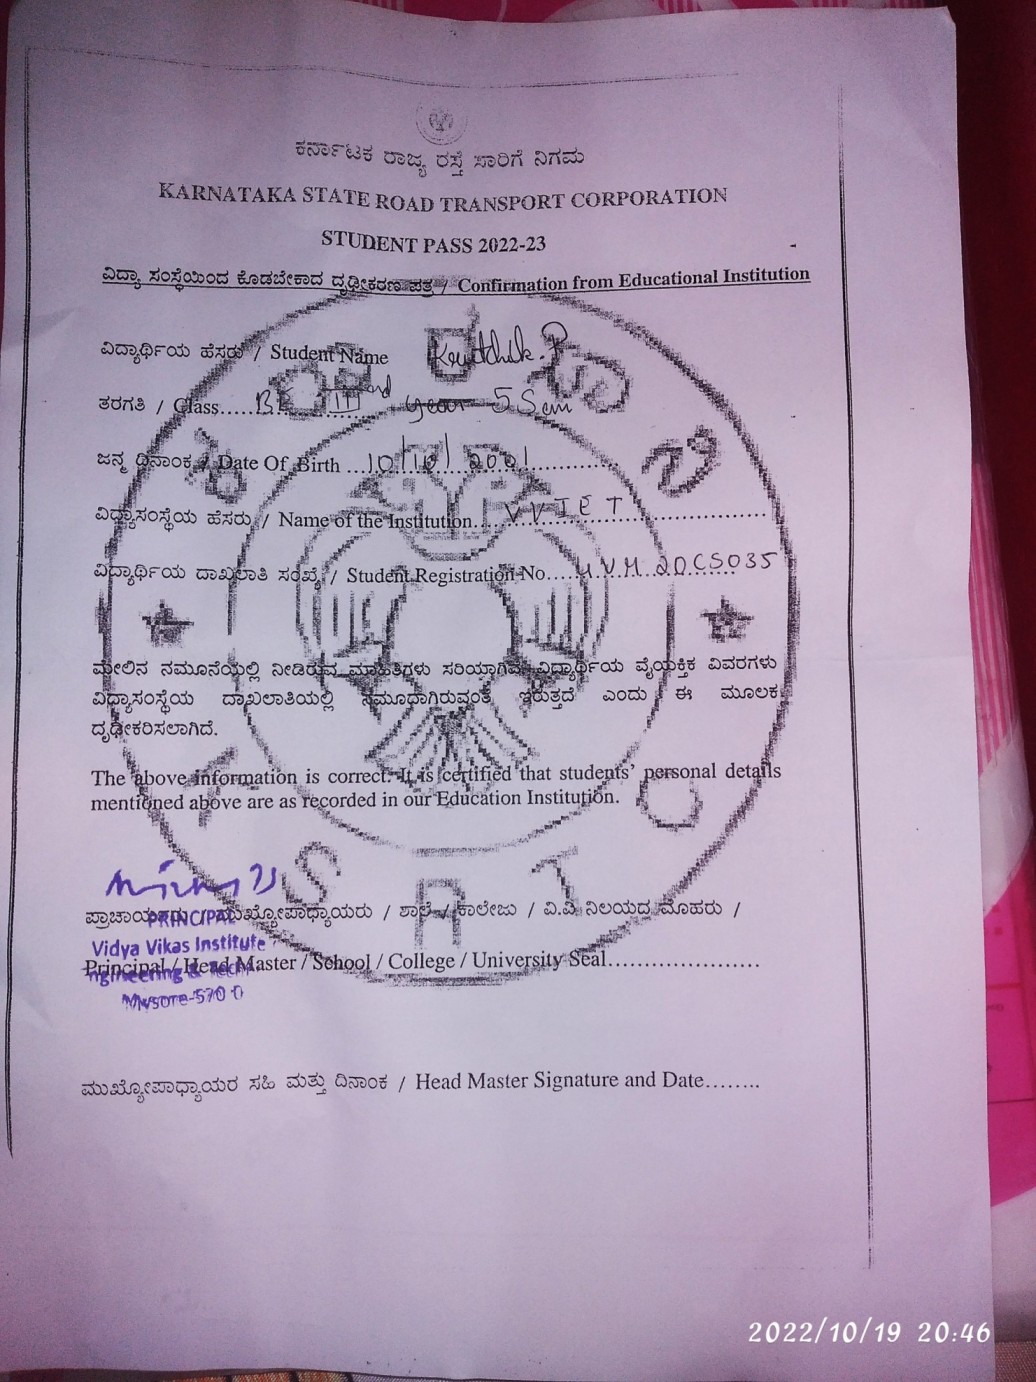 ಕರ್ನಾಟಕ ರಾಜ್ಯ ರಸ್ತೆ ಸಾರಿಗೆ ನಿಗಮ
KARNATAKA STATE ROAD TRANSPORT CORPORATION
STUDENT PASS 2022-23
ವಿದ್ಯಾ ಸಂಸ್ಥೆಯಿಂದ ಕೊಡಬೇಕಾದ ದೃಢೀಕರಣ ಪತ್ರ / Confirmation from Educational Institution
ವಿದ್ಯಾರ್ಥಿಯ ಹೆಸರು / Student Name
ತರಗತಿ / Class..... BE III year 5 Sem
ಜನ್ಮ ದಿನಾಂಕ / Date Of Birth ...10/10/2001
ವಿದ್ಯಾಸಂಸ್ಥೆಯ ಹೆಸರು / Name of the Institution... VVIET
ವಿದ್ಯಾರ್ಥಿಯ ದಾಖಲಾತಿ ಸಂಖ್ಯೆ / Student Registration No.... 4VM20CS035
ಮೇಲಿನ ನಮೂನೆಯಲ್ಲಿ ನೀಡಿರುವ ಮಾಹಿತಿಗಳು ಸರಿಯಾಗಿವೆ. ವಿದ್ಯಾರ್ಥಿಯ ವೈಯಕ್ತಿಕ ವಿವರಗಳು
ವಿದ್ಯಾಸಂಸ್ಥೆಯ ದಾಖಲಾತಿಯಲ್ಲಿ ನಮೂದಾಗಿರುವಂತೆ ಇರುತ್ತದೆ ಎಂದು ಈ ಮೂಲಕ
ದೃಢೀಕರಿಸಲಾಗಿದೆ.
The above information is correct. It is certified that students' personal details
mentioned above are as recorded in our Education Institution.
ಪ್ರಾಚಾರ್ಯರು / ಮುಖ್ಯೋಪಾಧ್ಯಾಯರು / ಶಾಲೆ / ಕಾಲೇಜು / ವಿ.ವಿ ನಿಲಯದ ಮೊಹರು /
PRINCIPAL
Vidya Vikas Institute
Principal / Head Master / School / College / University Seal.....................
Engineering & Tech
Mysore-570 0
ಮುಖ್ಯೋಪಾಧ್ಯಾಯರ ಸಹಿ ಮತ್ತು ದಿನಾಂಕ / Head Master Signature and Date........
KSRTC
2022/10/19 20:46